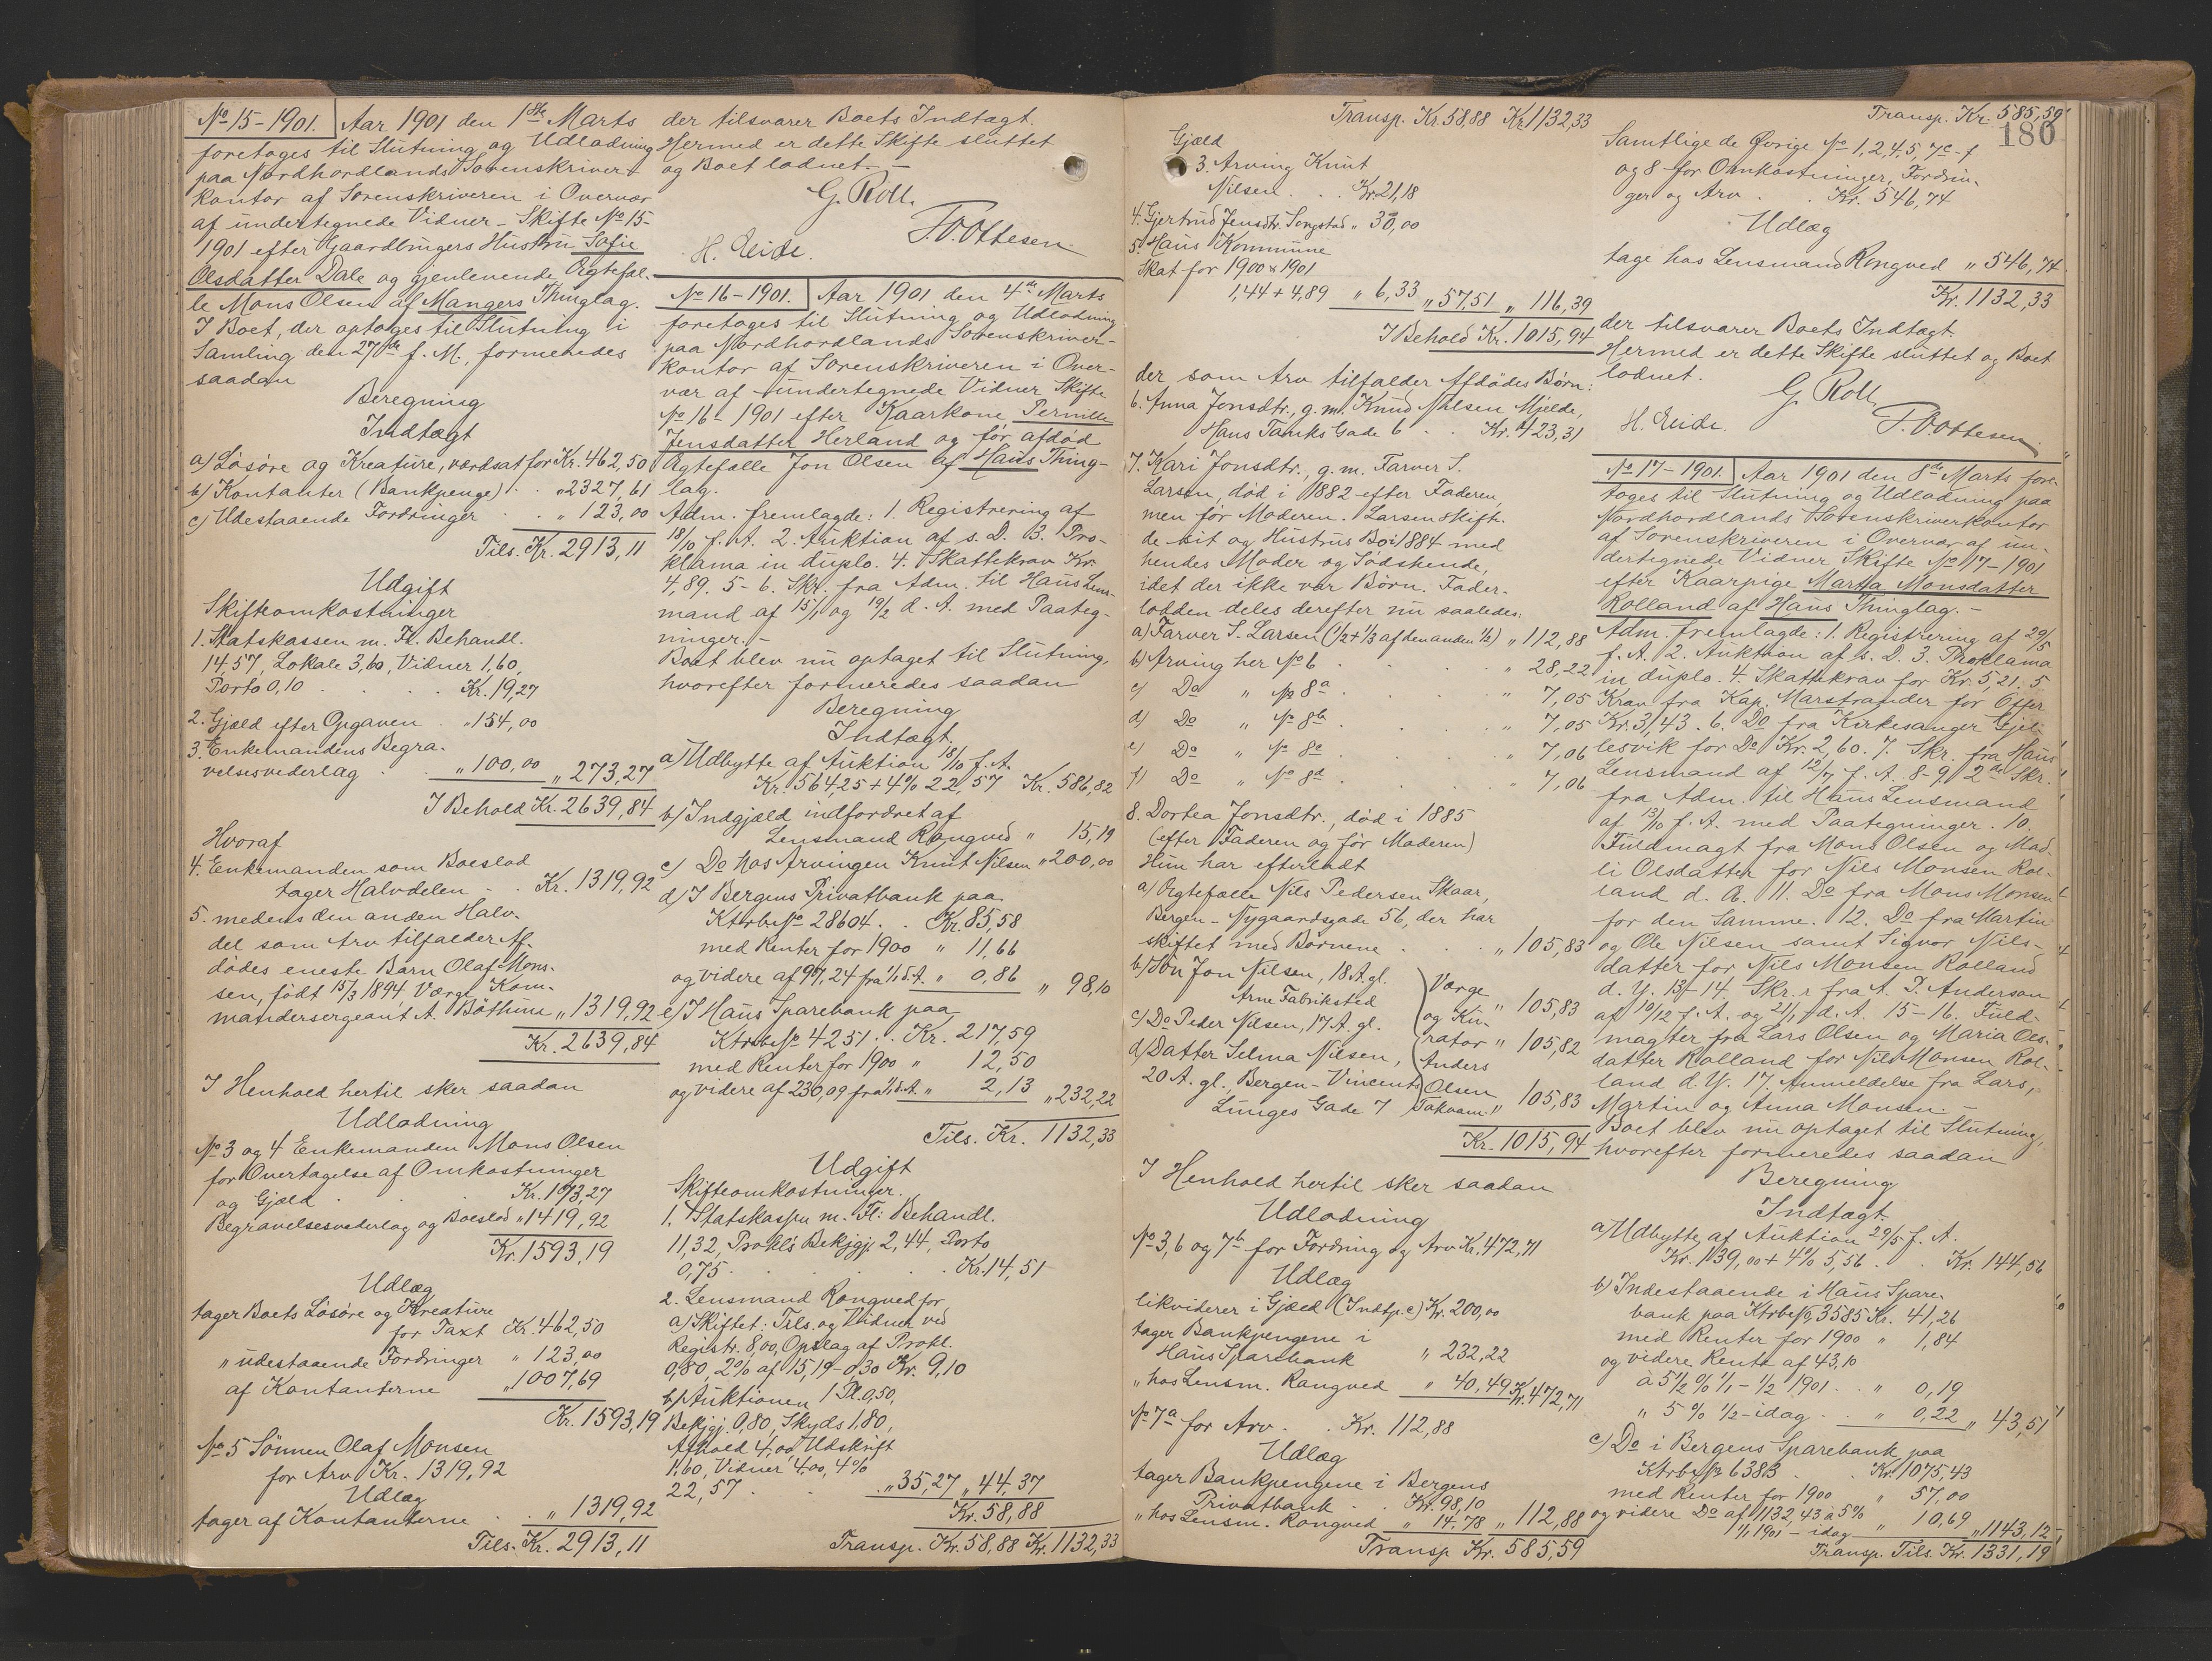 No 15-1901. Aar 1901 den 1ste Marts
foretoges til Slutning og Udlodning
paa Nordhordlands Sorenskriver-
kontor af Sorenskriveren i Overvær
af undertegnede Vidner - Skifte No 15-
1901 efter Gaardbrugers Hustru Sofie
Olsdatter Dale og gjenlevende Ægtefæl-
le Mons Olsen af Mangers Thinglag.
I Boet, der optoges til Slutning i
Samling den 27de f. M., formeredes
saadan
Beregning
Indtægt
a) Løsøre og Kreature, værdsat for Kr. 462,50
b) Kontanter (Bankpenge) . . " 2327,61
c) Udestaaende Fordringer . . " 123,00
Tils. Kr. 2913,11
Udgift
Skifteomkostninger
1. Statskassen m. Fl. Behandl.
14.57, Lokale 3,00, Vidner 1,60,
Porto 0,10 . . . . Kr. 19,27
2. Gjæld efter Opgaven . " 154,00
3. Enkemandens Begra-
velsesvederlag . . " 100,00 " 273,27
I Behold Kr. 2639,84
Hvoraf
4. Enkemanden som Boeslod
tager Halvdelen - . Kr. 1319,92
5. medens den anden Halv-
del som Arv tilfalder Af-
dødes eneste Barn Olaf Mons-
sen, født 15/3 1894, Værge Kom-
mandersergeant A. Böthun " 1319,92
Kr. 2639,84
I Henhold hertil sker saadan
Udlodning
No 3 og 4 Enkemanden Mons Olsen
for Overtagelse af Omkostninger
og Gjæld . . . Kr. 173,27
Begravelsesvederlag og Boeslod " 1419,92
Kr. 1593,19
Udlæg
tager Boets Løsøre og Kreature
for Taxt Kr. 462,50
" udestaaende Fordringer " 123,00
af Kontanterne " 1007,69
Kr. 1593,19
No 5 Sønnen Olaf Monsen
for Arv Kr. 1319,92
Udlæg
tager af Kontanterne . . " 1319,92
Tils. Kr. 2913,11
der tilsvarer Boets Indtægt.
Hermed er dette Skifte sluttet
og Boet lodnet. -
G. Roll.
H. Eide. T. O. Ottesen
No 16-1901. Aar 1901 den 4de Marts
foretoges til Slutning og Udlodning
paa Nordhordlands Sorenskriver-
kontor af Sorenskriveren i Over-
vær af undertegnede Vidner Skifte
No 16-1901 efter Kaarkone Pernille
Jensdatter Herland og før afdød
Ægtefælle Jon Olsen af Haus Thing-
lag.
Adm. fremlagde: 1. Registrering af
18/10 f. A. 2. Auktion af s. D. 3. Pro-
klama in duplo. 4. Skattekrav Kr.
4,89. 5-6. Skr. fra Adm. til Haus Lens-
mand af 15/1 og 19/2 d. A. med Paateg-
ninger. -
Boet blev nu optaget til Slutning,
hvorefter formeredes saadan
Beregning
Indtægt.
a) Udbytte af Auktion 18/10 f. A.
Kr. 564,25 + 4% 22,57 Kr. 586,82
b) Indgjæld indfordret af
Lensmand Rongved " 15,19
c) Do hos Arvingen Knut Nilsen " 200,00
d) I Bergens Privatbank paa
Ktrbe No 28604 . . Kr. 85,58
med Renter for 1900 " 11,66
og videre af 97,24 fra 1/1 d. A. " 0,86 " 98,10
e) I Haus Sparebank paa
Ktrbe No 4251 . . Kr. 217,59
med Renter for 1900 " 12,50
og videre af 230,09 fra 1/1 d. A. " 2,13 " 232,22
Tils. Kr. 1132,33
Udgift
Skifteomkostninger.
1. Statskassen m. Fl: Behandl.
11,32, Prokl's Bekjgj. 2,44, Porto
0,75 . . . . . Kr. 14,51
2. Lensmand Rongved for
a) Skiftet: Tils. og Vidner ved
Registr. 8,00, Opslag af Prokl.
0,80, 2% af 15,19 - 0,30 Kr. 9,10
b) Auktionen 1 Pl. 0,50,
Bekjgj. 0,80, Skyds 1,80,
Afhold 4,00, Udskrift
1,60, Vidner 4,00, 4%
22,57 . . . " 35,27 " 44,37
Kr. 58,88
Transp. Kr. 58,88 Kr. 1132,33
Transp. Kr. 58,88 Kr. 1132,33
Gjæld
3. Arving Knut
Nilsen . . Kr. 21,18
4. Gjertrud Jensdtr. Songstad " 30,00
5. Haus Kommune
Skat for 1900 & 1901
1,44 + 4,89 " 6,33 " 57,51 " 116,39
I Behold Kr. 1015,94
der som Arv tilfalder Afdødes Børn:
6. Anna Jonsdtr., g. m. Knud Nilsen Mjelde,
Hans Tanks Gade 6 . . Kr. 423,31
7. Kari Jonsdtr., g. m. Farver S.
Larsen, død i 1882 efter Faderen,
men før Moderen. Larsen skift-
de sit og Hustrus Bo i 1884 med
hendes Moder og Sødskende,
idet der ikke var Børn. Fader-
lodden deles derefter nu saaledes:
a) Farver S. Larsen (1/2 + 1/3 af den anden 1/2) " 112,88
b) Arving her No 6 . . . " 28,22
c) Do " No 8a . . . " 7,05
d) Do " No 8b . . . " 7,05
e) Do " No 8c . . . " 7,06
f) Do " No 8d . . . " 7,06
8. Dortea Jonsdtr., død i 1885
(efter Faderen og før Moderen)
Hun har efterladt
a) Ægtefælle Nils Pedersen Skaar,
Bergen - Nygaardsgade 56, der har
skiftet med Børnene . . . " 105,83
b) Søn Jon Nilsen, 18 A. gl. Værge " 105,83
Arne Fabriksted
c) Do Peder Nilsen, 17 A. gl. og Ku-
rator " 105,82
d) Datter Selma Nilsen, Anders
20 A. gl., Bergen - Vincents Olsen
Lunges Gade 7 Takvam " 105,83
Kr. 1015,94
I Henhold hertil sker saadan
Udlodning
No 3, 6 og 7b for Fordring og Arv Kr. 472,71
Udlæg
likviderer i Gjæld (Indtp. c) Kr. 200,00
tager Bankpengene i
Haus Sparebank " 232,22
" hos Lensm. Rongved " 40,49 Kr. 472,71
No 7a for Arv . . Kr. 112,88
Udlæg
tager Bankpengene i Bergens
Privatbank . . Kr. 98,10
" hos Lensm. Rongved " 14,78 " 112,88
Transp Kr. 585,59
Transp. Kr. 585,59
180
Samtlige de Øvrige No 1, 2, 4, 5, 7c-f
og 8 for Omkostninger, Fordrin-
ger og Arv . . Kr. 546,74
Udlæg
tage hos Lensmand Rongved " 546,74
Kr. 1132,33
der tilsvarer Boets Indtægt.
Hermed er dette Skifte sluttet og Boet
lodnet.
G. Roll.
H. Eide. T. O. Ottesen
No 17-1901. Aar 1901 den 8de Marts fore-
toges til Slutning og Udlodning paa
Nordhordlands Sorenskriverkontor
af Sorenskriveren i Overvær af un-
dertegnede Vidner Skifte No 17-1901
efter Kaarpige Martha Monsdatter
Rolland af Haus Thinglag. -
Adm. fremlagde: 1. Registrering af 29/5
f. A. 2. Auktion af s. D. 3. Proklama
in duplo. 4. Skattekrav for Kr. 5,21. 5
Krav fra Kap. Marstrander for Offer
Kr. 3,43. 6. Do fra Kirkesanger Gjel-
lesvik for Do Kr. 2,60. 7. Skr. fra Haus
Lensmand af 12/7 f. A. 8-9. 2de Skr.
fra Adm. til Haus Lensmand
af 13/10 f. A. med Paategninger. 10.
Fuldmagt fra Mons Olsen og Mad-
li Olsdatter for Nils Monsen Rol-
land d. Æ. 11. Do fra Mons Monsen
for den Samme. 12. Do fra Martin
og Ole Nilsen samt Signor Nils-
datter for Nils Monsen Rolland
d. Y. 13-14. Skr.r fra A. P. Anderson
af 10/12 f. A. og 21/1 d. A. 15-16. Fuld-
magter fra Lars Olsen og Maria Ols-
datter Rolland for Nils Monsen Rol-
land d. Y. 17. Anmeldelse fra Lars,
Martin og Anna Monsen. -
Boet blev nu optaget til Slutning,
hvorefter formeredes saadan
Beregning
Indtægt.
a) Udbytte af Auktion 29/5 f. A.
Kr. 139,00 + 4% 5,56 . . Kr. 144,56
b) Indestaaende i Haus Spare-
bank paa Ktrbe No 3585 Kr. 41,26
med Renter for 1900 " 1,84
og videre Rente af 43,10
à 5 1/2 % 1/1 - 1/2 1901 . . " 0,19
" 5 % 1/2 - idag . . " 0,22 " 43,51
c) Do i Bergens Sparebank paa
Ktrbe No 6383 . . Kr. 1075,43
med Renter for 1900 " 57,00
og videre Do af 1132,43 à 5%
1/1 1901 - idag " 10,69 " 1143,12
Transp. Tils. Kr. 1331,19